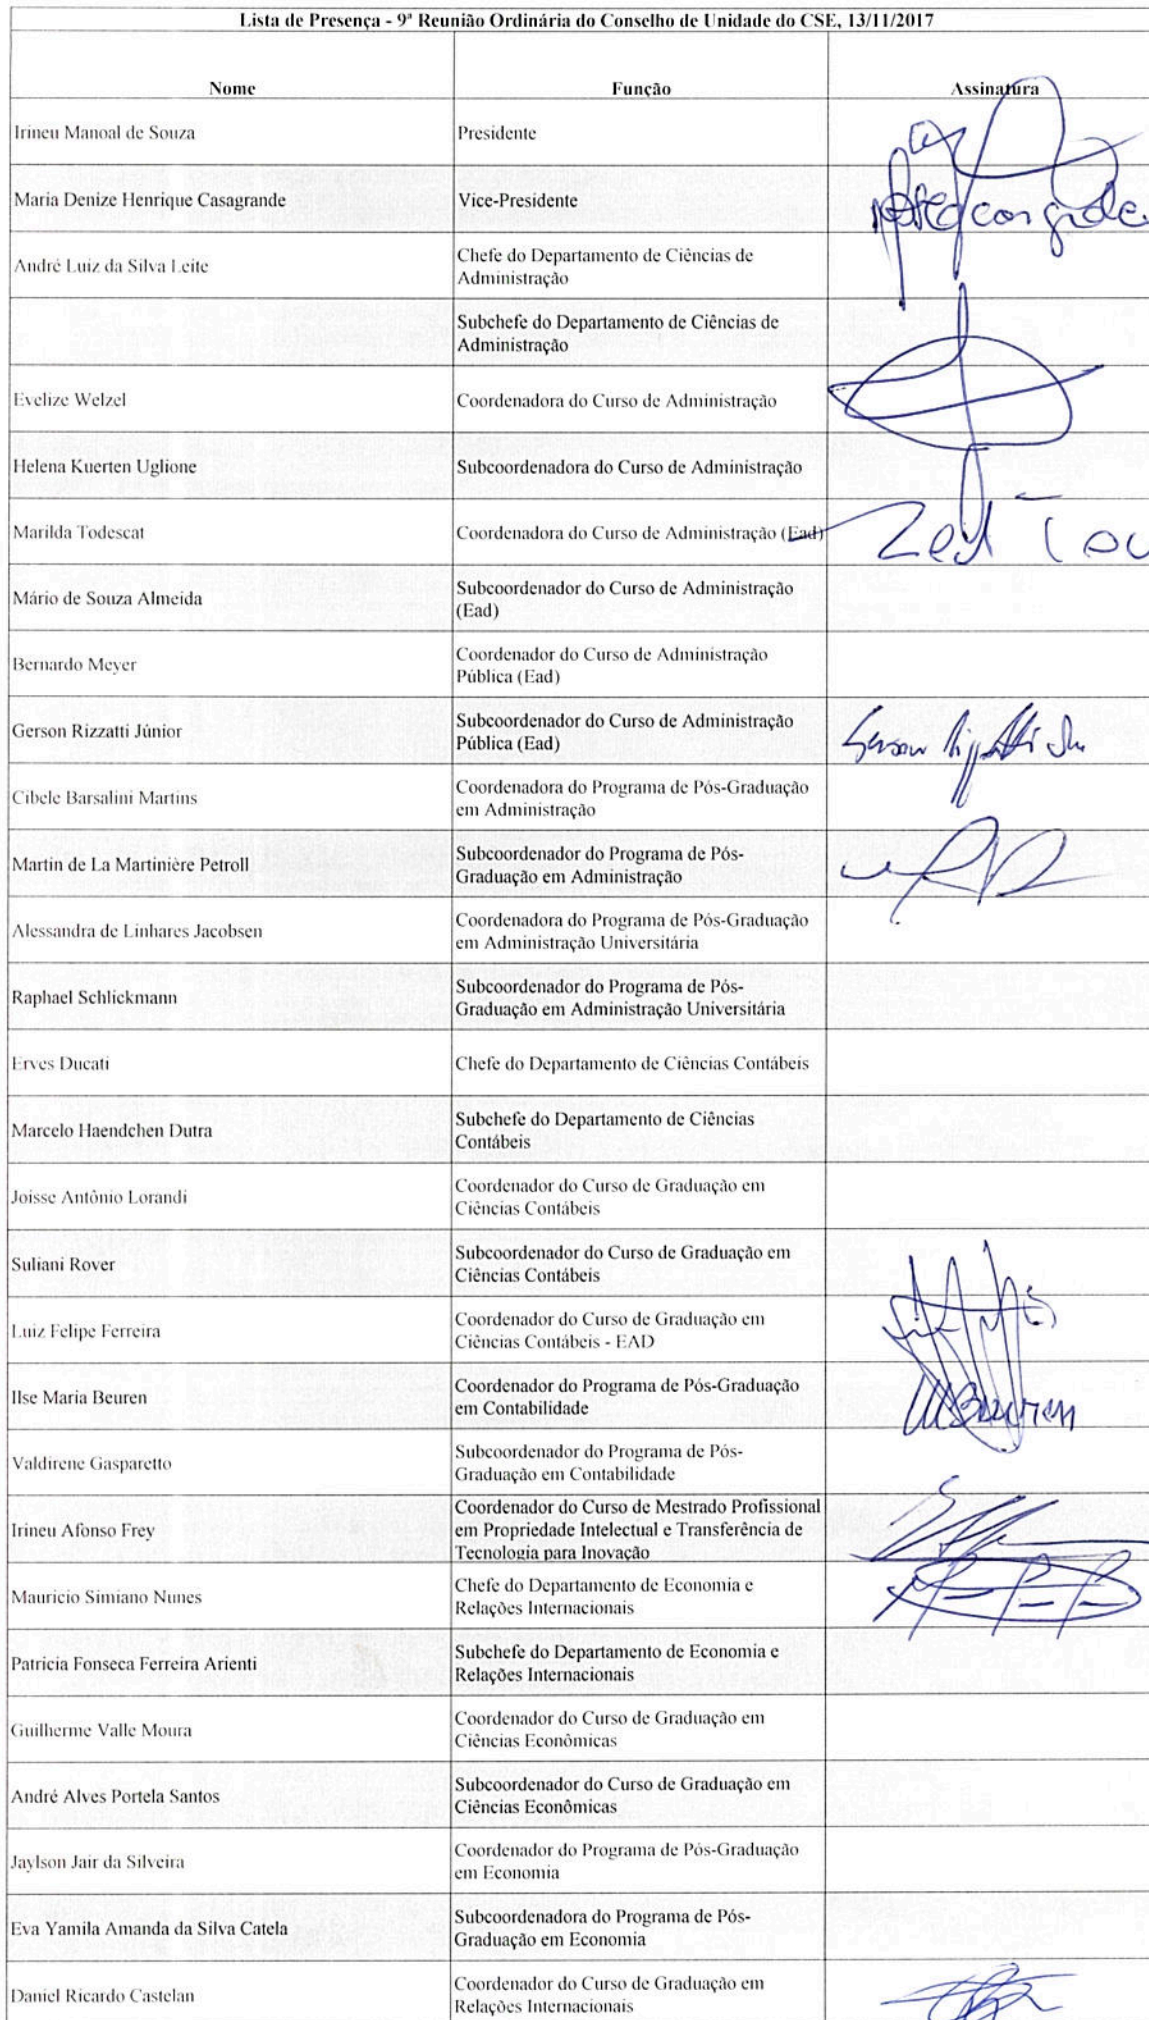 Lista de Presença - 9ª Reunião Ordinária do Conselho de Unidade do CSE, 13/11/2017
Nome Função Assinatura
Irineu Manoal de Souza Presidente
Maria Denize Henrique Casagrande Vice-Presidente
André Luiz da Silva Leite Chefe do Departamento de Ciências de
Administração
Subchefe do Departamento de Ciências de
Administração
Evelize Welzel Coordenadora do Curso de Administração
Helena Kuerten Uglione Subcoordenadora do Curso de Administração
Marilda Todescat Coordenadora do Curso de Administração (Ead)
Mário de Souza Almeida Subcoordenador do Curso de Administração
(Ead)
Bernardo Meyer Coordenador do Curso de Administração
Pública (Ead)
Gerson Rizzatti Júnior Subcoordenador do Curso de Administração
Pública (Ead)
Cibele Barsalini Martins Coordenadora do Programa de Pós-Graduação
em Administração
Martin de La Martinière Petroll Subcoordenador do Programa de Pós-
Graduação em Administração
Alessandra de Linhares Jacobsen Coordenadora do Programa de Pós-Graduação
em Administração Universitária
Raphael Schlickmann Subcoordenador do Programa de Pós-
Graduação em Administração Universitária
Erves Ducati Chefe do Departamento de Ciências Contábeis
Marcelo Haendchen Dutra Subchefe do Departamento de Ciências
Contábeis
Joisse Antônio Lorandi Coordenador do Curso de Graduação em
Ciências Contábeis
Suliani Rover Subcoordenador do Curso de Graduação em
Ciências Contábeis
Luiz Felipe Ferreira Coordenador do Curso de Graduação em
Ciências Contábeis - EAD
Ilse Maria Beuren Coordenador do Programa de Pós-Graduação
em Contabilidade
Valdirene Gasparetto Subcoordenador do Programa de Pós-
Graduação em Contabilidade
Irineu Afonso Frey Coordenador do Curso de Mestrado Profissional
em Propriedade Intelectual e Transferência de
Tecnologia para Inovação
Mauricio Simiano Nunes Chefe do Departamento de Economia e
Relações Internacionais
Patricia Fonseca Ferreira Arienti Subchefe do Departamento de Economia e
Relações Internacionais
Guilherme Valle Moura Coordenador do Curso de Graduação em
Ciências Econômicas
André Alves Portela Santos Subcoordenador do Curso de Graduação em
Ciências Econômicas
Jaylson Jair da Silveira Coordenador do Programa de Pós-Graduação
em Economia
Eva Yamila Amanda da Silva Catela Subcoordenadora do Programa de Pós-
Graduação em Economia
Daniel Ricardo Castelan Coordenador do Curso de Graduação em
Relações Internacionais